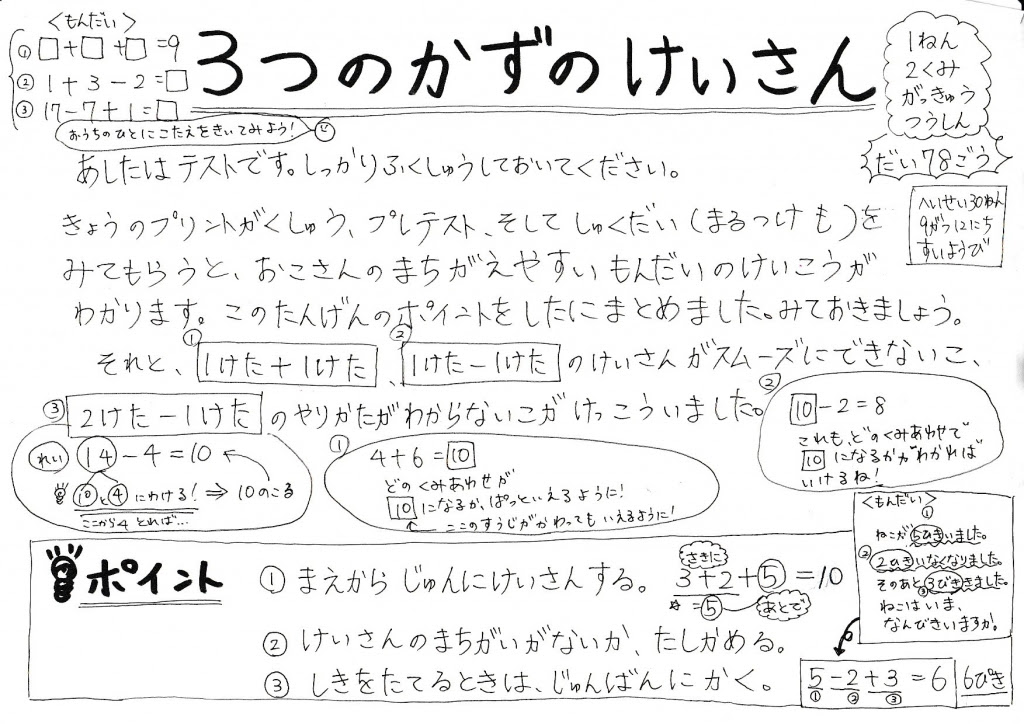 <もんだい>
① □+□+□=9
② 1+3-2=□
③ 17-7+1=□
おうちのひとにこたえをきいてみよう!
3つのかずのけいさん
1ねん
2くみ
がっきゅう
つうしん
だい78ごう
へいせい30ねん
9がつ12にち
すいようび
あしたはテストです。しっかりふくしゅうしておいてください。
きょうのプリントがくしゅう、プレテスト、そしてしゅくだい(まるつけも)を
みてもらうと、おこさんのまちがえやすいもんだいのけいこうが
わかります。このたんげんのポイントをしたにまとめました。みておきましょう。
それと、①1けた+1けた、②1けた-1けたのけいさんがスムーズにできないこ、
③2けた-1けたのやりかたがわからないこがけっこういました。
れい 14-4=10
10と4にわける!⇒10のこる
ここから4とれば…
①
4+6=10
どのくみあわせが
10になるか、ぱっといえるように!
ここのすうじがかわってもいえるように!
②
10-2=8
これも、どのくみあわせで
10になるかがわかれば
いけるね!
ポイント
① まえからじゅんにけいさんする。
さきに
3+2+5=10
=5 あとで
② けいさんのまちがいがないか、たしかめる。
③ しきをたてるときは、じゅんばんにかく。
<もんだい>
①
ねこが5ひきいました。
②2ひきいなくなりました。
そのあと③3びききました。
ねこはいま、
なんびきいますか。
5-2+3=6 6ぴき
① ② ③